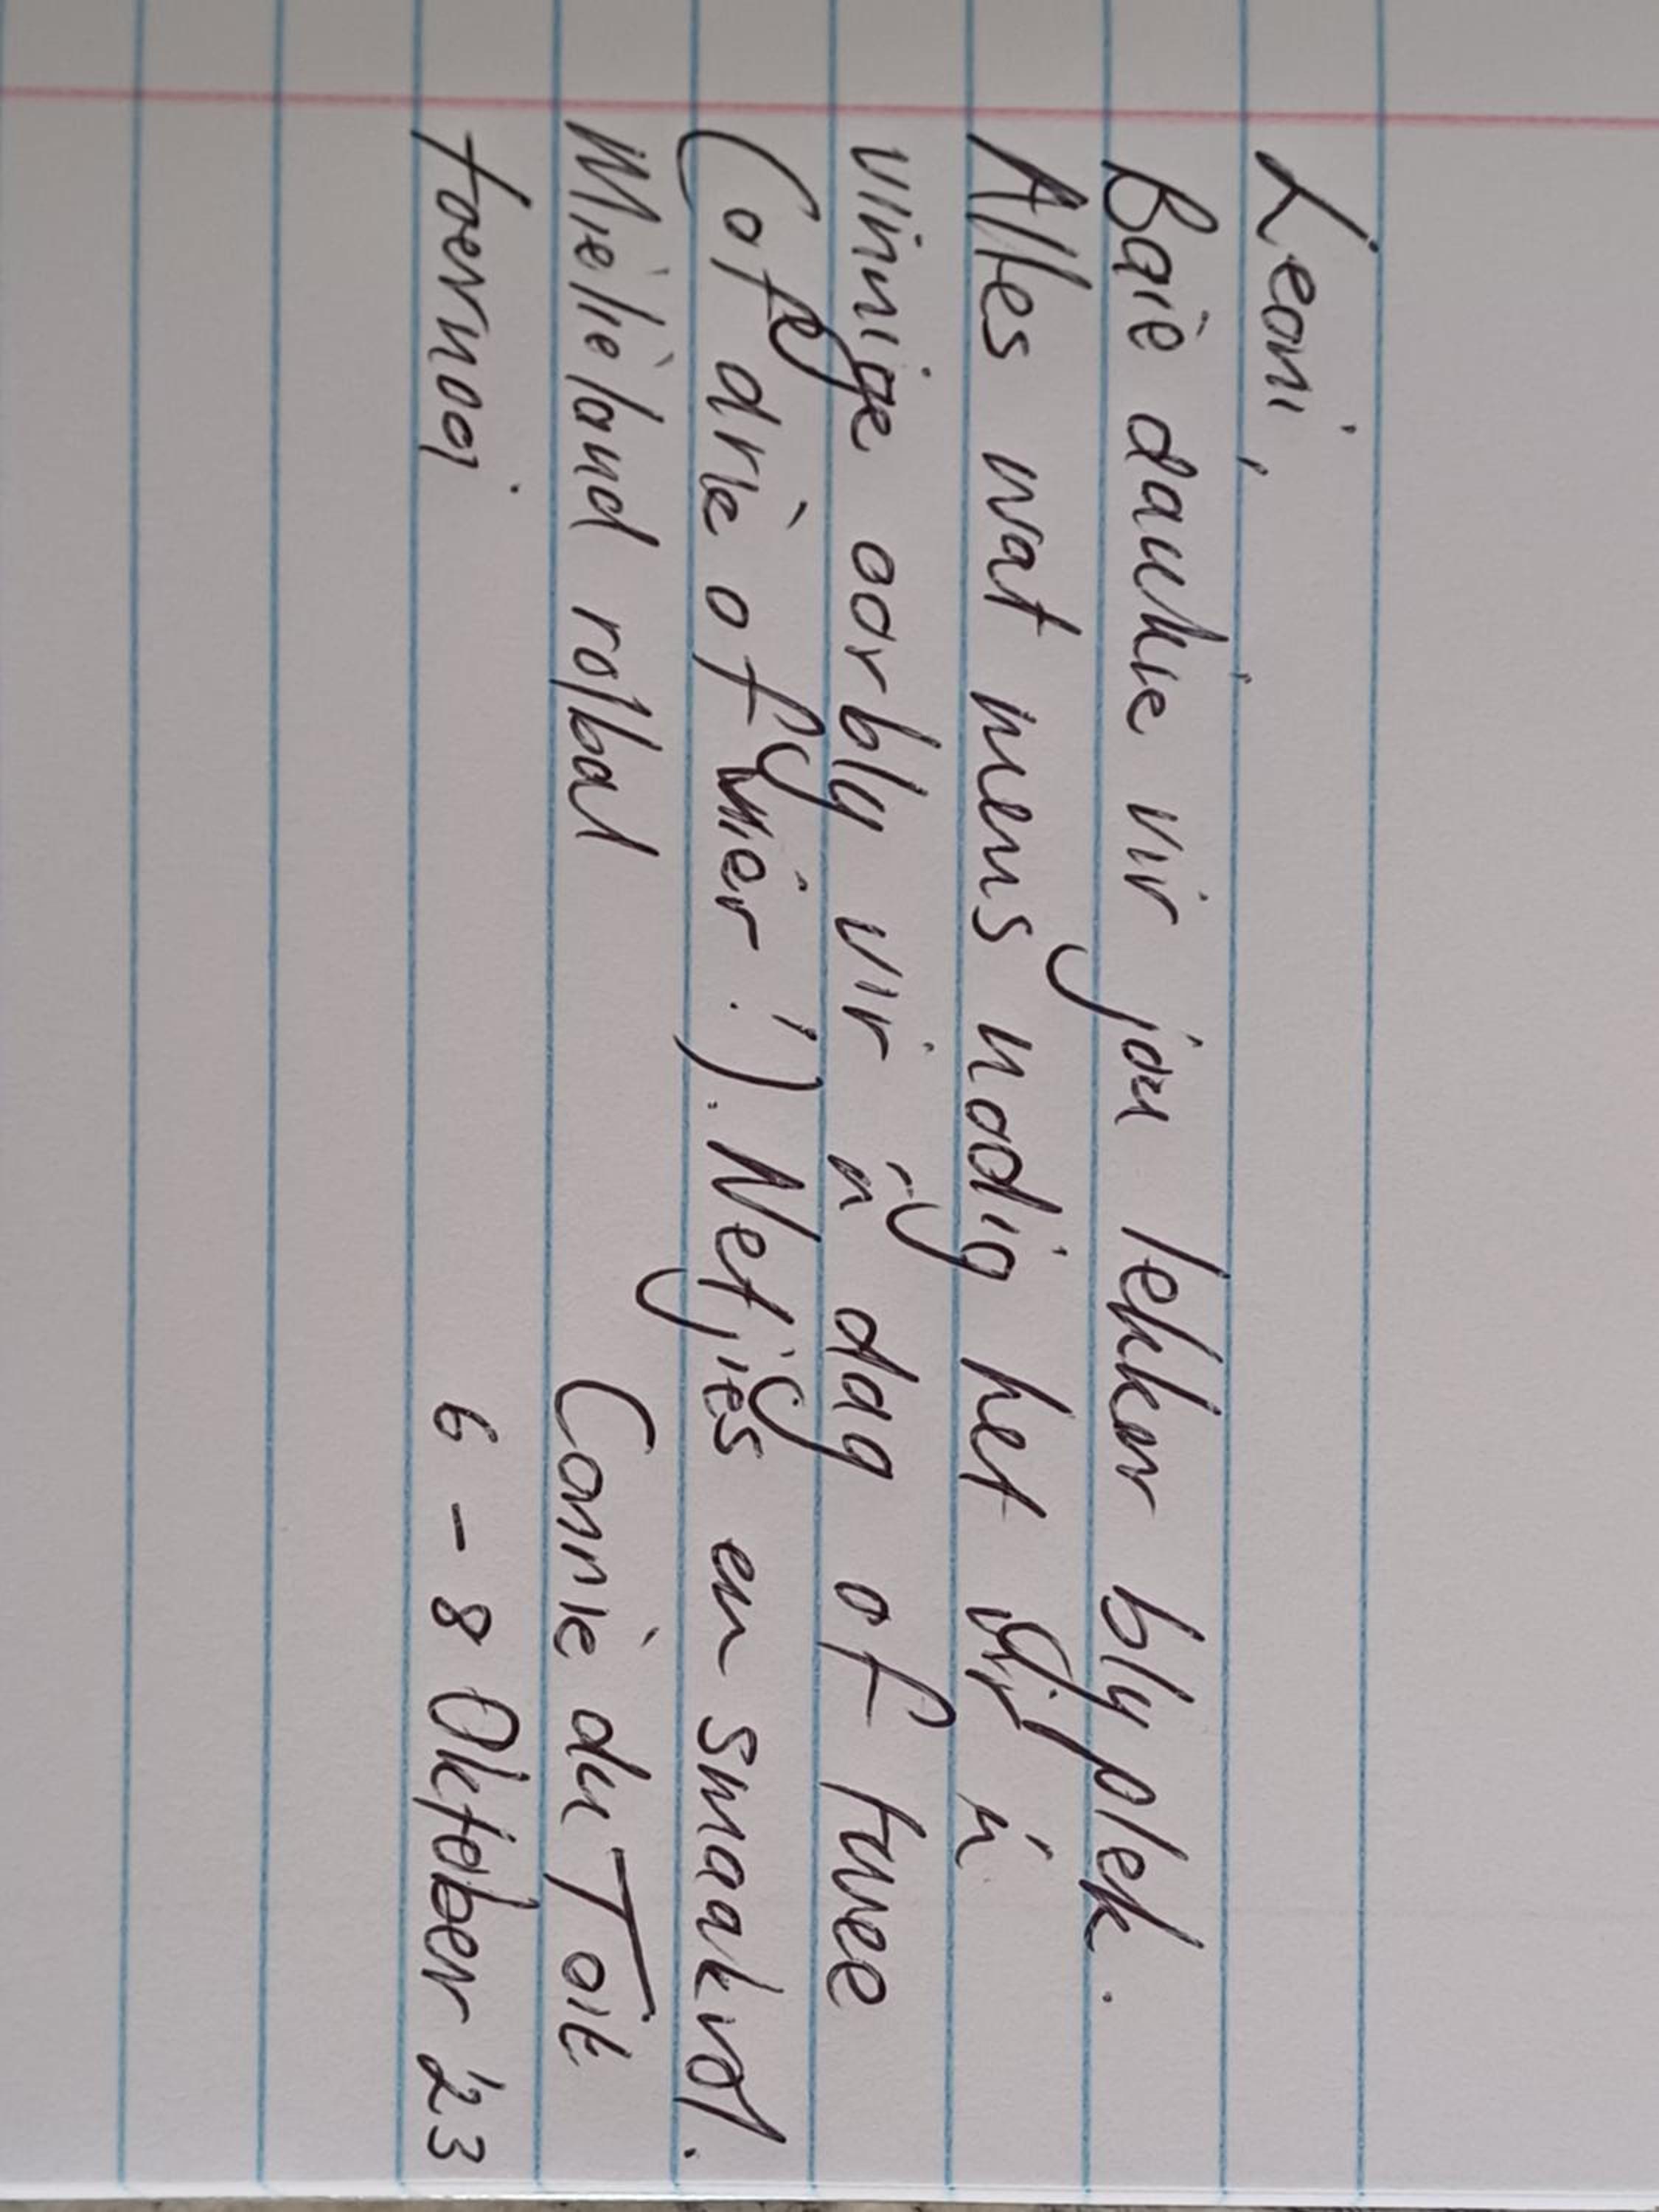 Leoni,
Baie dankie vir jou lekker blyplek.
Alles wat mens nodig het vir 'n
vinnige oorbly vir 'n dag of twee
(of drie of meer!). Netjies en smaakvol.
Mielieland rolbal Connie du Toit
toernooi 6 - 8 Oktober '23